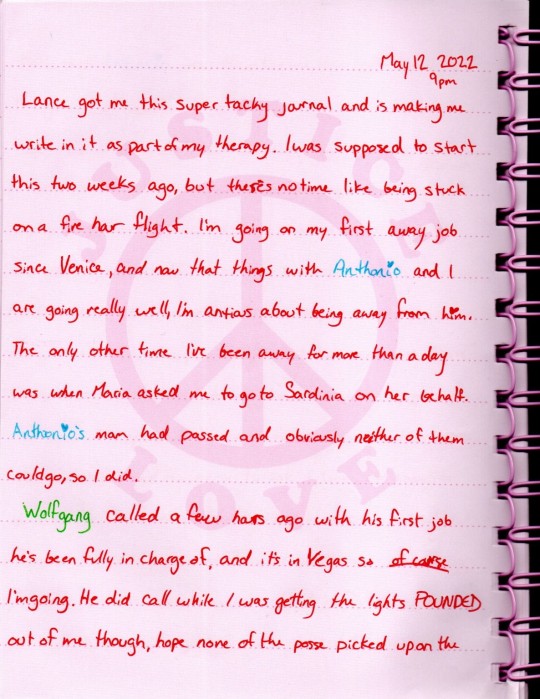 May 12 2022
9pm
Lance got me this super tacky journal and is making me
write in it as part of my therapy. I was supposed to start
this two weeks ago, but theres no time like being stuck
on a five hour flight. I'm going on my first away job
since Venice, and now that things with Anthonio and I
are going really well, I'm anxious about being away from him.
The only other time I've been away for more than a day
was when Maria asked me to go to Sardinia on her behalf.
Anthonio's mom had passed and obviously neither of them
could go, so I did.
Wolfgang called a few hours ago with his first job
he's been fully in charge of, and it's in Vegas so of course
I'm going. He did call while I was getting the lights POUNDED
out of me though, hope none of the posse picked up on the
JUSTICE
LOVE